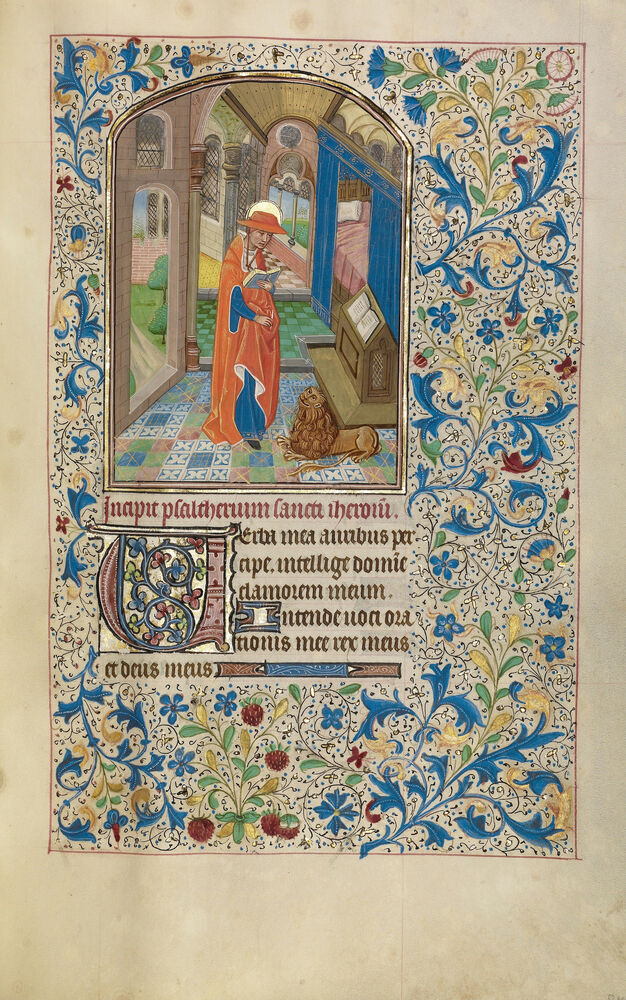 Incipit psaltherium sancti iheronimi.
Verba mea auribus per
cipe. intellige domine
clamorem meum.
Intende uoci ora
tionis mee rex meus
et deus meus